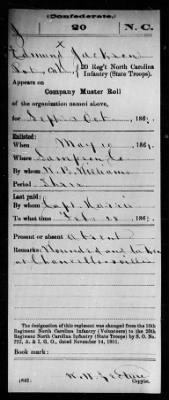 (Confederate.)
J 20 N. C.
Edmund Jackson
Pvt, Co. 20 Reg't North Carolina
Infantry (State Troops).
Appears on
Company Muster Roll
of the organization named above,
for Sept & Oct, 186
Enlisted:
When May 10, 186
Where Sampson Co
By whom
Period
Last paid:
By whom Capt.
To what time Feb 186
Present or absent Absent
Remarks: Wounded and taken
at Chancellorsville
The designation of this regiment was changed from the 10th
Regiment North Carolina Infantry (Volunteers) to the 20th
Regiment North Carolina Infantry (State Troops) by S. O. No.
222, A. & I. G. O., dated November 14, 1861.
Book mark:
(642)
Copyist.